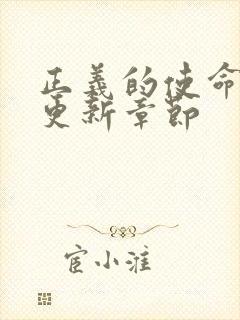 正義的使命
更新章節
宦小淮